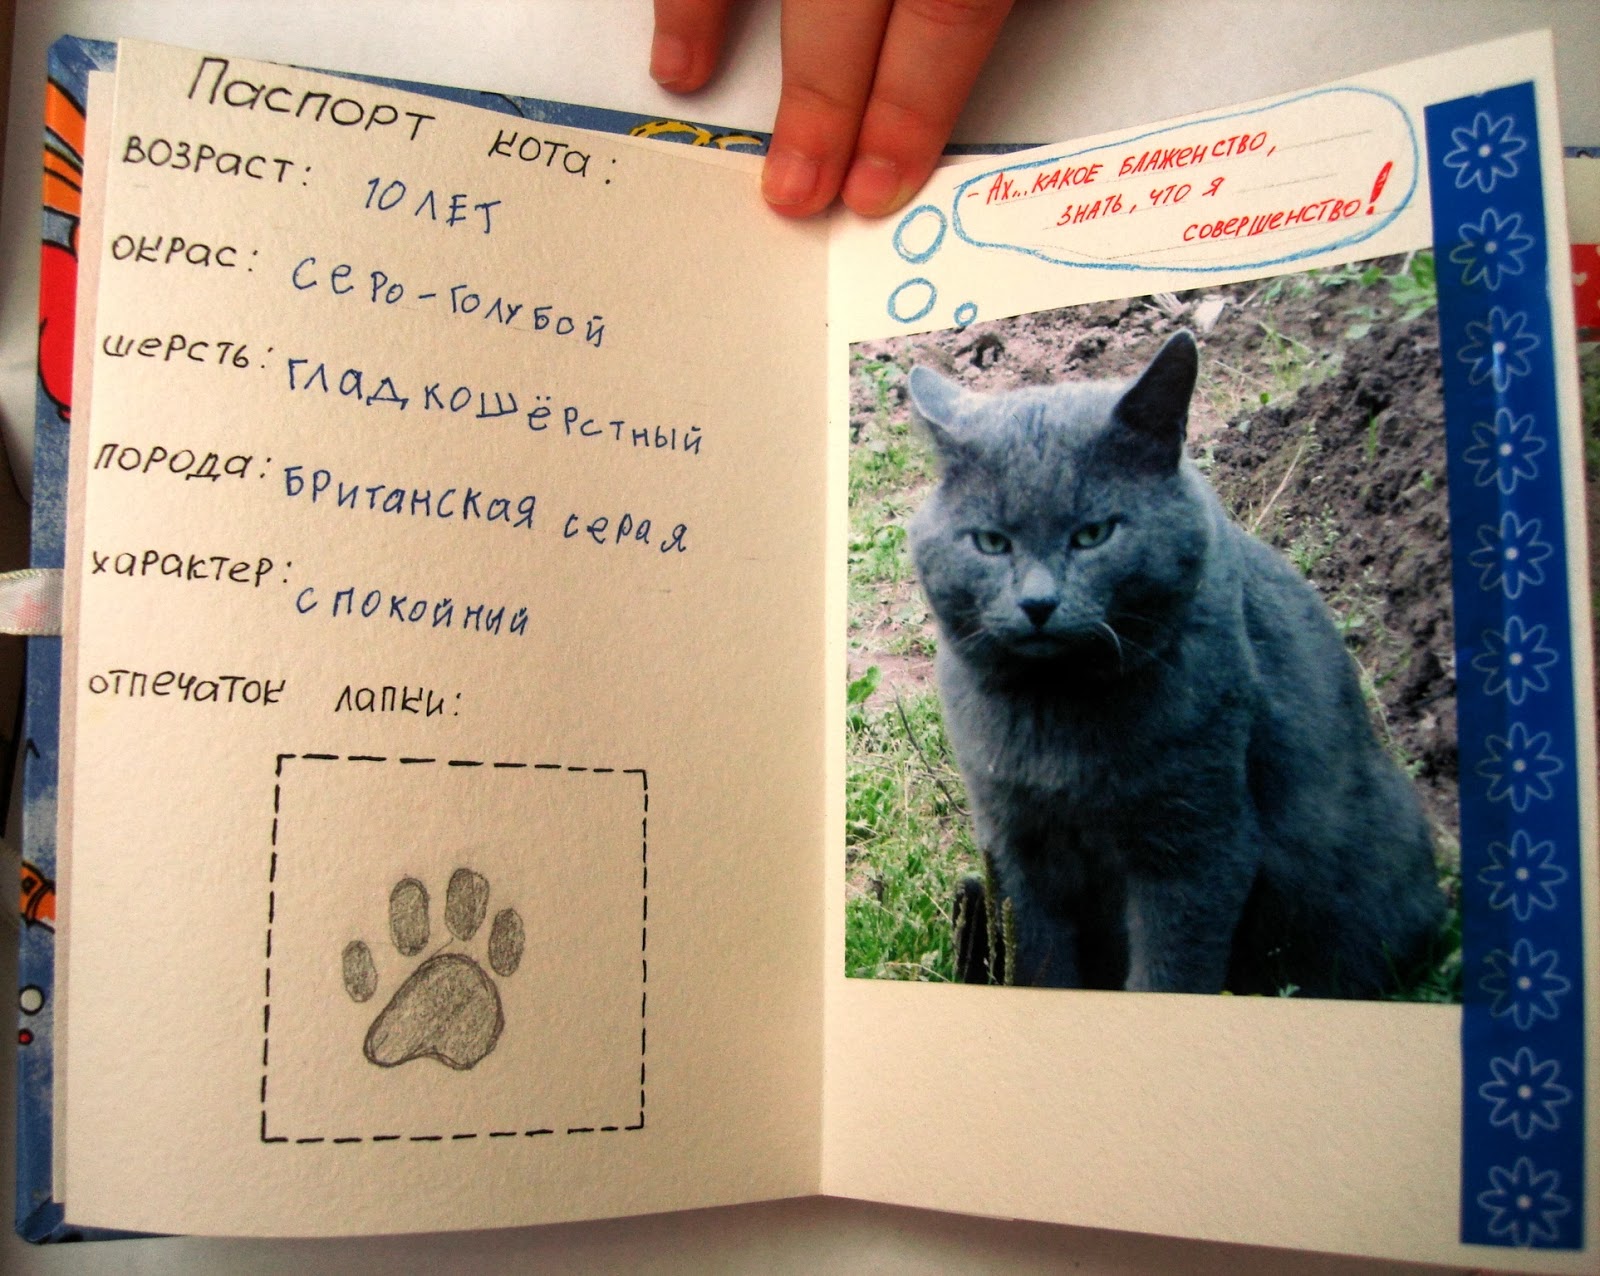 Паспорт кота:
возраст: 10 лет
окрас: серо-голубой
шерсть: гладкошёрстный
порода: Британская серая
характер: спокойный
отпечаток лапки:
- Ах...какое блаженство,
знать, что я
совершенство!